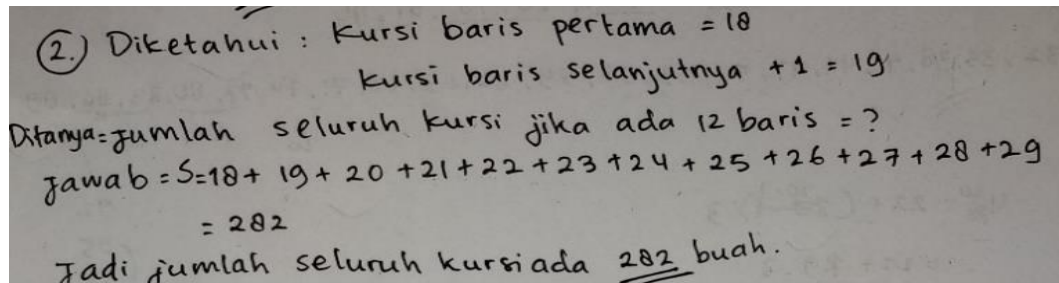 2.) Diketahui : Kursi baris pertama = 18
Kursi baris selanjutnya + 1 = 19
Ditanya = Jumlah seluruh kursi jika ada 12 baris = ?
Jawab = S = 18 + 19 + 20 + 21 + 22 + 23 + 24 + 25 + 26 + 27 + 28 + 29
= 282
Jadi jumlah seluruh kursi ada 282 buah.